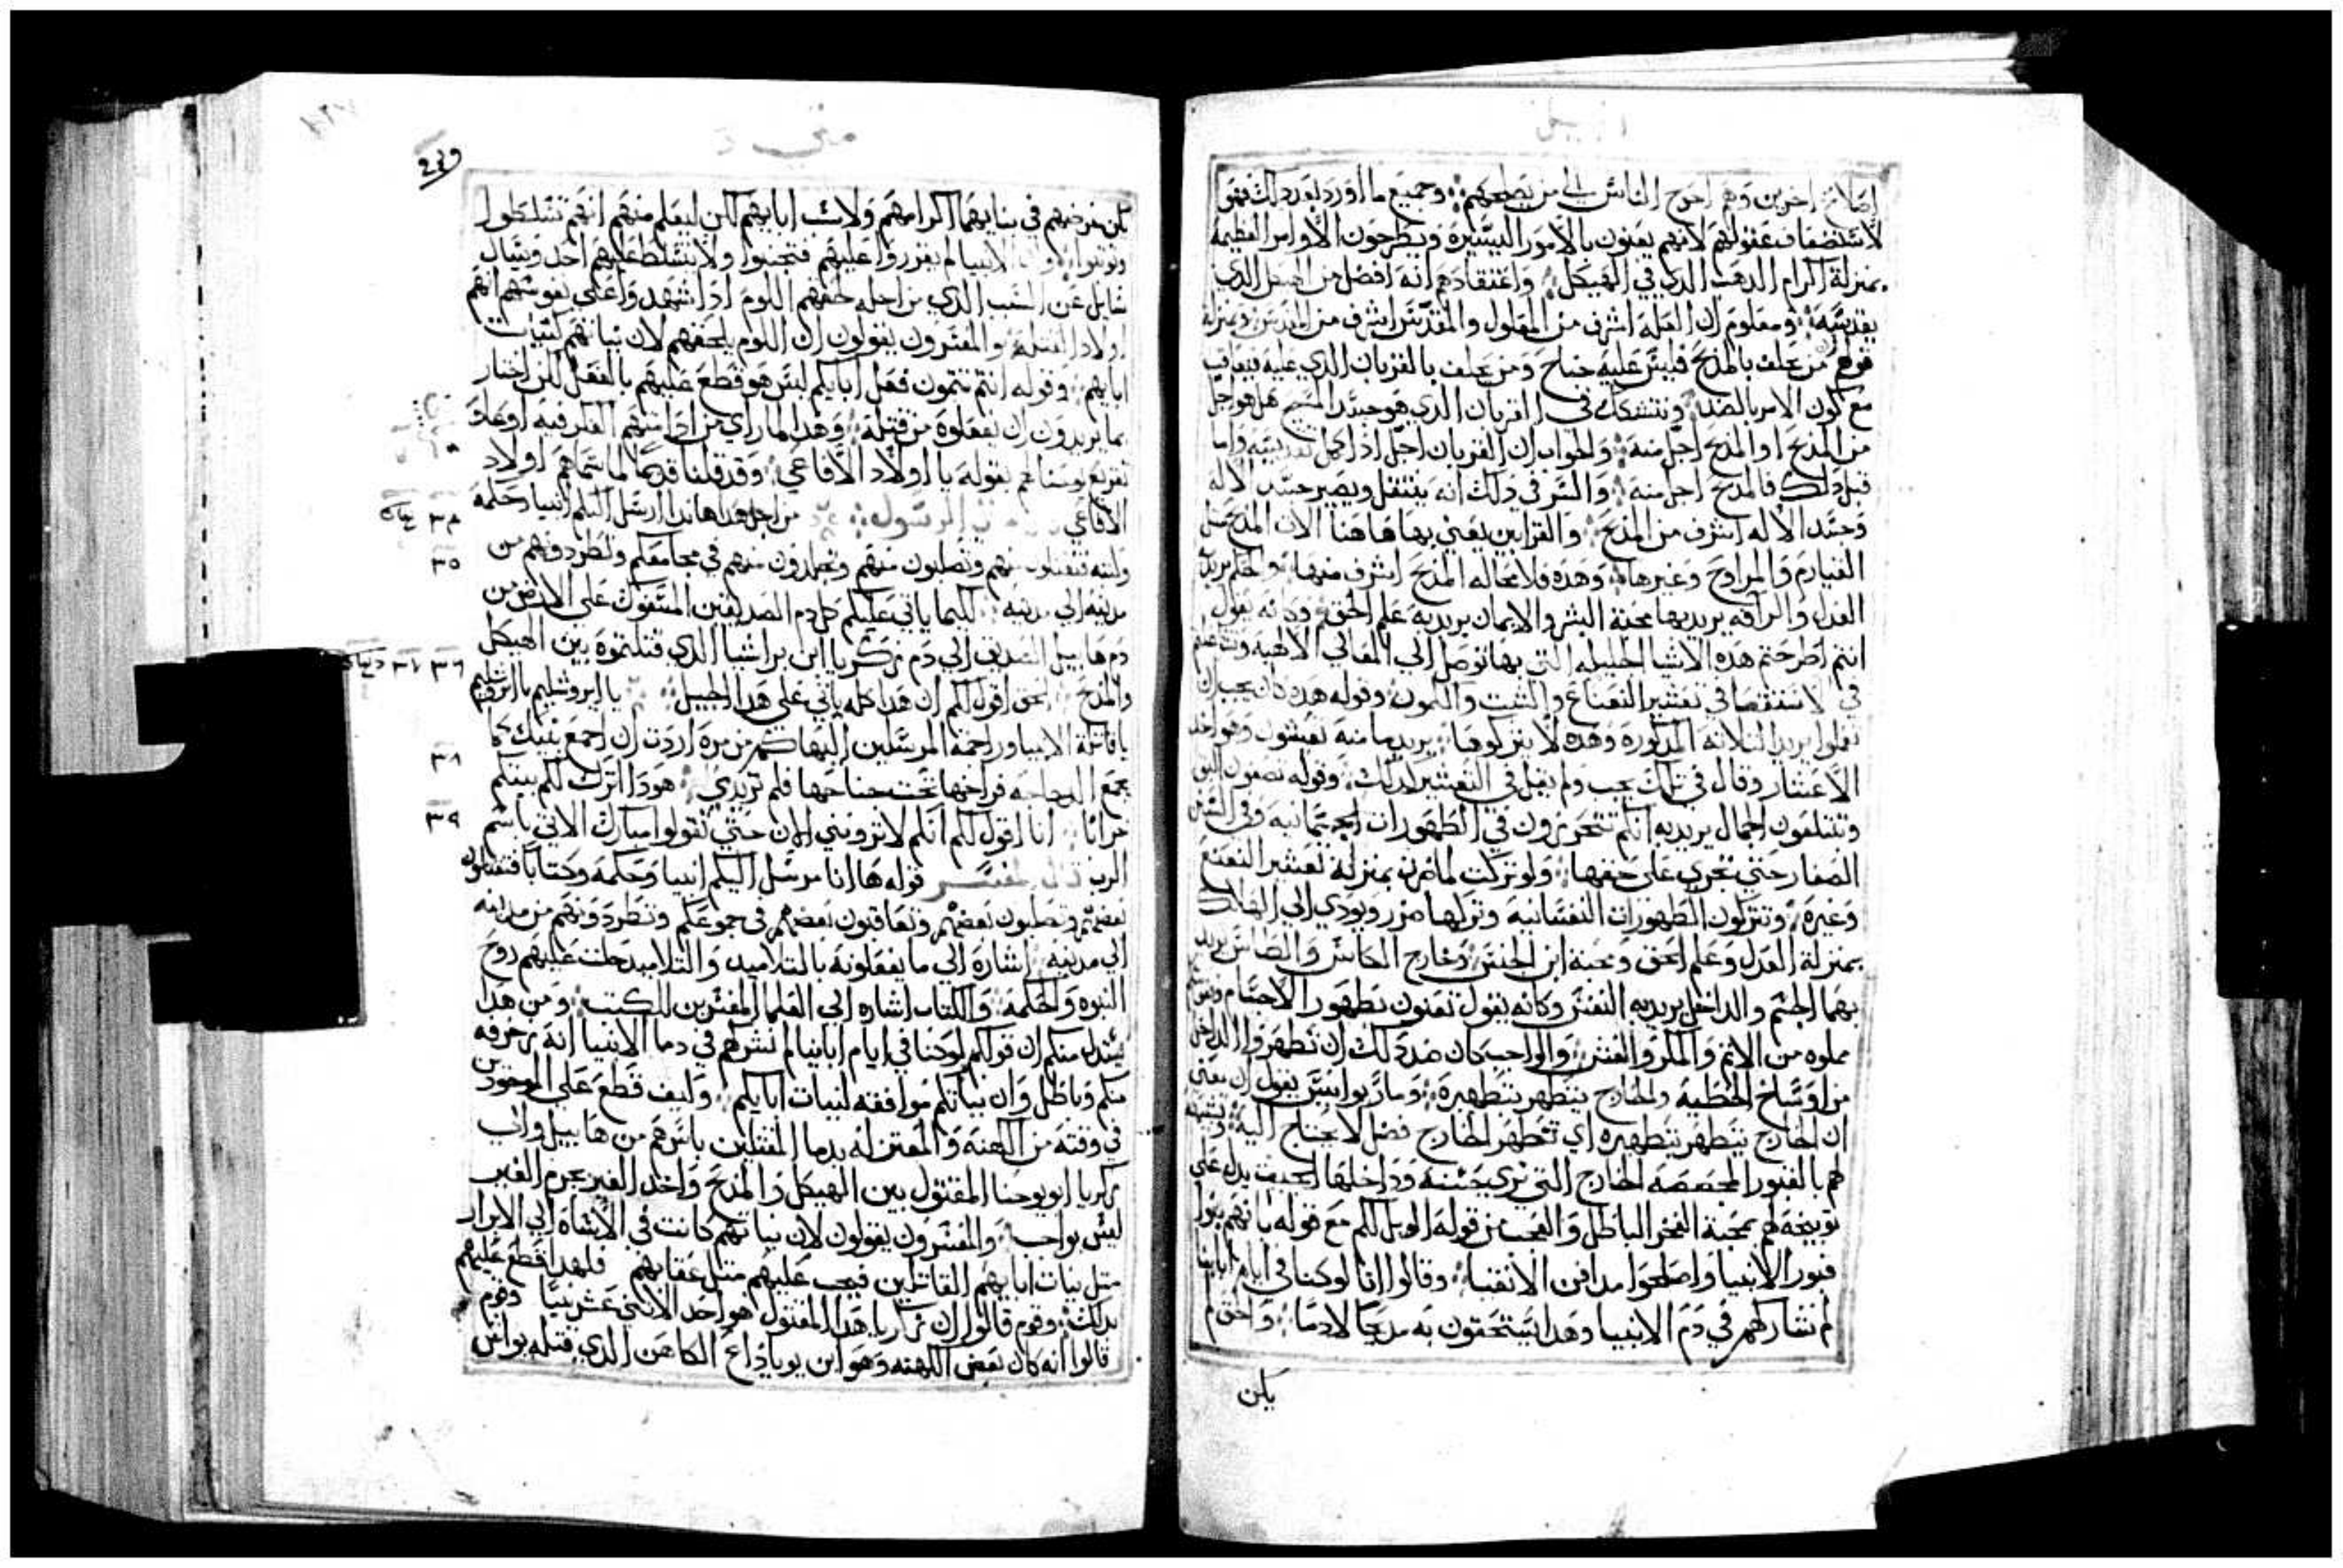 اصلاح اخرين وهم احوج الناس الي من يصلحهم وجميع ما اورد يورد ذلك فهو
لاستضعاف عقولهم لانهم يعنون بالامور اليسيره ويطرحون الاوامر العظيمه
بمنزلة اكرام الدهب الدي في الهيكل واعتقادهم انه افضل من الهيكل الدي
يقدسه ومعلوم ان العله اشرف من المعلول والمقدس اشرف من المقدس وبمنزلة
قولهم من يحلف بالمدبح فليس عليه جناح ومن يحلف بالقربان الدي عليه فيعاقب
مع كون الامر بالضد ونتشكك في القربان الدي هو جسد المسيح هل هو اجل
من المدبح او المدبح اجل منه والجواب ان القربان اجل ادا كمل تقديسه واما
قبل دلك فالمدبح اجل منه والسر في دلك انه ينتقل ويصير جسد الاله
وجسد الاله اشرف من المدبح والقرابين يعني بها هاهنا الات المدبح مثل
المراوح وغيرها وهده فلا محاله المدبح اشرف منها والحكم يريد
العدل والرافه يريد بها محبة البشر والايمان يريد به علم الحق وكانه يقول
انتم اطرحتم هده الاشيا الجليله التي بها توصل الي المعالي الالاهيه
في الاستقصا في تعشير النعناع والشبت والكمون وقوله هده كان يجب ان
تفعلوا يريد التلاته المدكورة وهده لا تتركوها يريد ما منه تعشون وهو اخد
الاعشار وقال في تلك يجب ولم يقل في التعشير كدلك وقوله تصفون البق
وتبتلعون الجمال يريد به انكم تتحررون في الطهورات الجسمانيه وفي السنن
الصغار حتي تجري علي حقها ولو تركت لما ضرت بمنزلة تعشير النعنع
وغيره وتتركون الطهورات النفسانيه وتركها مضر ويودي الي الهلاك
بمنزلة العدل وعلم الحق ومحبة ابن الجنس وخارج الكاس والطاس يريد
بهما الجسم والداخل يريد به النفس وكانه يقول تعنون بطهور الاجسام
مملوه من الاتم والمكر والغش والواجب كان ضد دلك ان تطهروا الداخل
من اوساخ الخطيه والخارج يتطهر بتطهيره ومار يوانيس يقول ان معني
ان الخارج يتطهر بتطهيره اي تطهر الخارج فضل لا يحتاج اليه وتشبيهه
لهم بالقبور المجصصه الخارج التي تري حسنه وداخلها الجيف يدل علي
توبيخه لهم بمحبة الفخر الباطل والعجب من قوله الويل لكم مع قوله بانهم بنوا
قبور الانبيا واصلحوا مدافن الاتقيا وقالوا اننا لو كنا في ايام ابائنا
لم نشاركهم في دم الانبيا وهدا يستحقون به مديحا لا دما والحق
لكن
متي
لكن غرضهم في بنايهما اكرامهم ولا ثلب ابايهم لكن ليعلم منهم انهم تسلطوا
الانبيا لم يقرروا عليهم فتجنبوا ولا يتسلط عليهم احد ويسال
سايل عن السبب الدي من اجله لحقهم اللوم ادا شهدوا علي نفوسهم انهم
اولاد القتله والمفسرون يقولون ان اللوم يلحقهم لان نياتهم كنيات
ابايهم وقوله انتم تتمون فعل ابايكم ليس هو قطع عليهم بالفعل لكن اخبار
بما يريدون ان يفعلوه من قتله وهدا لما راي من ادامتهم الفكر فيه
بقوله يا اولاد الافاعي وقد قلنا قديما لما سماهم اولاد
الافاعي قال الرسول من اجل هدا هاندا ارسل اليكم انبيا وحكمه
وكتبه فتقتلون منهم وتصلبون منهم وتجلدون منهم في مجامعكم وتطردونهم من
مدينه الي مدينه لكيما ياتي عليكم كل دم الصديقين المسفوك علي الارض من
دم هابيل الصديق الي دم زكريا ابن براشيا الدي قتلتموه بين الهيكل
والمدبح الحق اقول لكم ان هدا كله ياتي علي هدا الجيل يا ايروشليم يا ايروشليم
يا قاتلة الانبيا وراجمة المرسلين اليها كم من مره اردت ان اجمع بنيك كما
تجمع الدجاجه فراخها تحت جناحها فلم تريدي هودا اترك لكم بيتكم
خرابا انا اقول لكم انكم لا تروني الان حتي تقولوا مبارك الاتي باسم
الرب قال المفسر قوله ها انا مرسل اليكم انبيا وحكمه وكتابا فتقتلون
بعضهم وتصلبون بعضهم وتعاقبون بعضهم في جموعكم وتطردونهم من مدينه
الي مدينه اشاره الي ما يفعلونه بالتلاميد والتلاميد حلت عليهم روح
النبوه والحكمه والكتاب اشاره الي العلما المفسرين للكتب ومن هدا
يستدل منكم ان قولكم لو كنا في ايام اباينا لم نشركهم في دما الانبيا انه زخرفه
منكم وباطل وان نياتكم موافقه لنيات ابايكم وكيف قطع علي الموجودين
في وقته من الكهنه والمعتزله بدما المقتلين باسرهم من هابيل والي
زكريا ابو يوحنا المقتول بين الهيكل والمدبح واخد الغير بجرم الغير
ليس بواجب والمفسرون يقولون لان نياتهم كانت في الاساه الي الابرار
مثل نيات ابايهم القاتلين فيجب عليهم مثل عقابهم فلهدا قطع عليهم
بدلك وقوم قالوا ان زكريا هدا المقتول هو احد الاثني عشر نبيا وقوم
قالوا انه كان بعض الكهنه وهو ابن يوياداع الكاهن الدي قتله يواش
٣٤
٣٥
٣٦ ٣٧
٣٨
٣٩